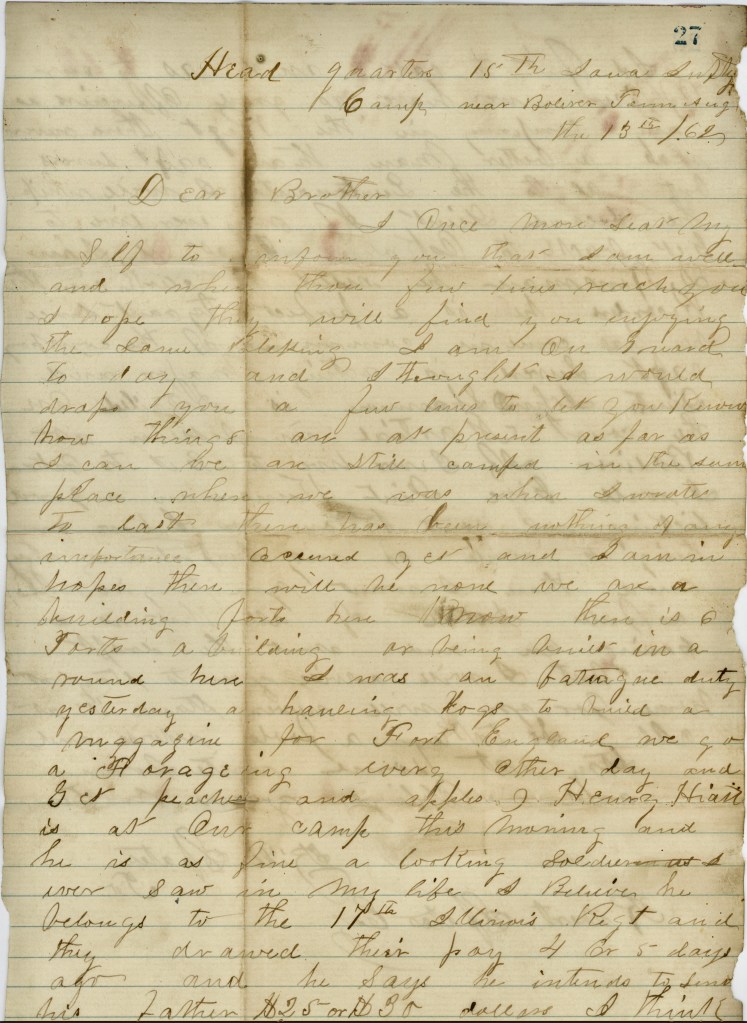 27
Head quarters 15th Iowa Infty
Camp near Boliver Tenn Aug
the 13th /62
Dear Brother
I Once more seat my
Self to inform you that I am well
and when those few lines reach you
I hope they will find you enjoying
the same Blessing I am On Guard
to day and I thought I would
drop you a few lines to let you know
how things are at present as far as
I can we are still camped in the same
place where we was when I wrote
to last there has been nothing of any
importance occured yet and I am in
hopes there will be none we are a
building forts here now there is 6
Forts a building or being built in a
round here I was an fatugue duty
yesterday a hauling Logs to build a
maggazine for Fort England we go
a Forageing every other day and
Get peaches and apples J Henry Hiatt
is at Our camp this morning and
he is as fine a looking Soldier as I
ever saw in my life I Believe he
belongs to the 17th Illinois Regt and
they drawed their pay 4 Or 5 days
ago and he says he intends to send
his Father $25 or $30 dollars I think